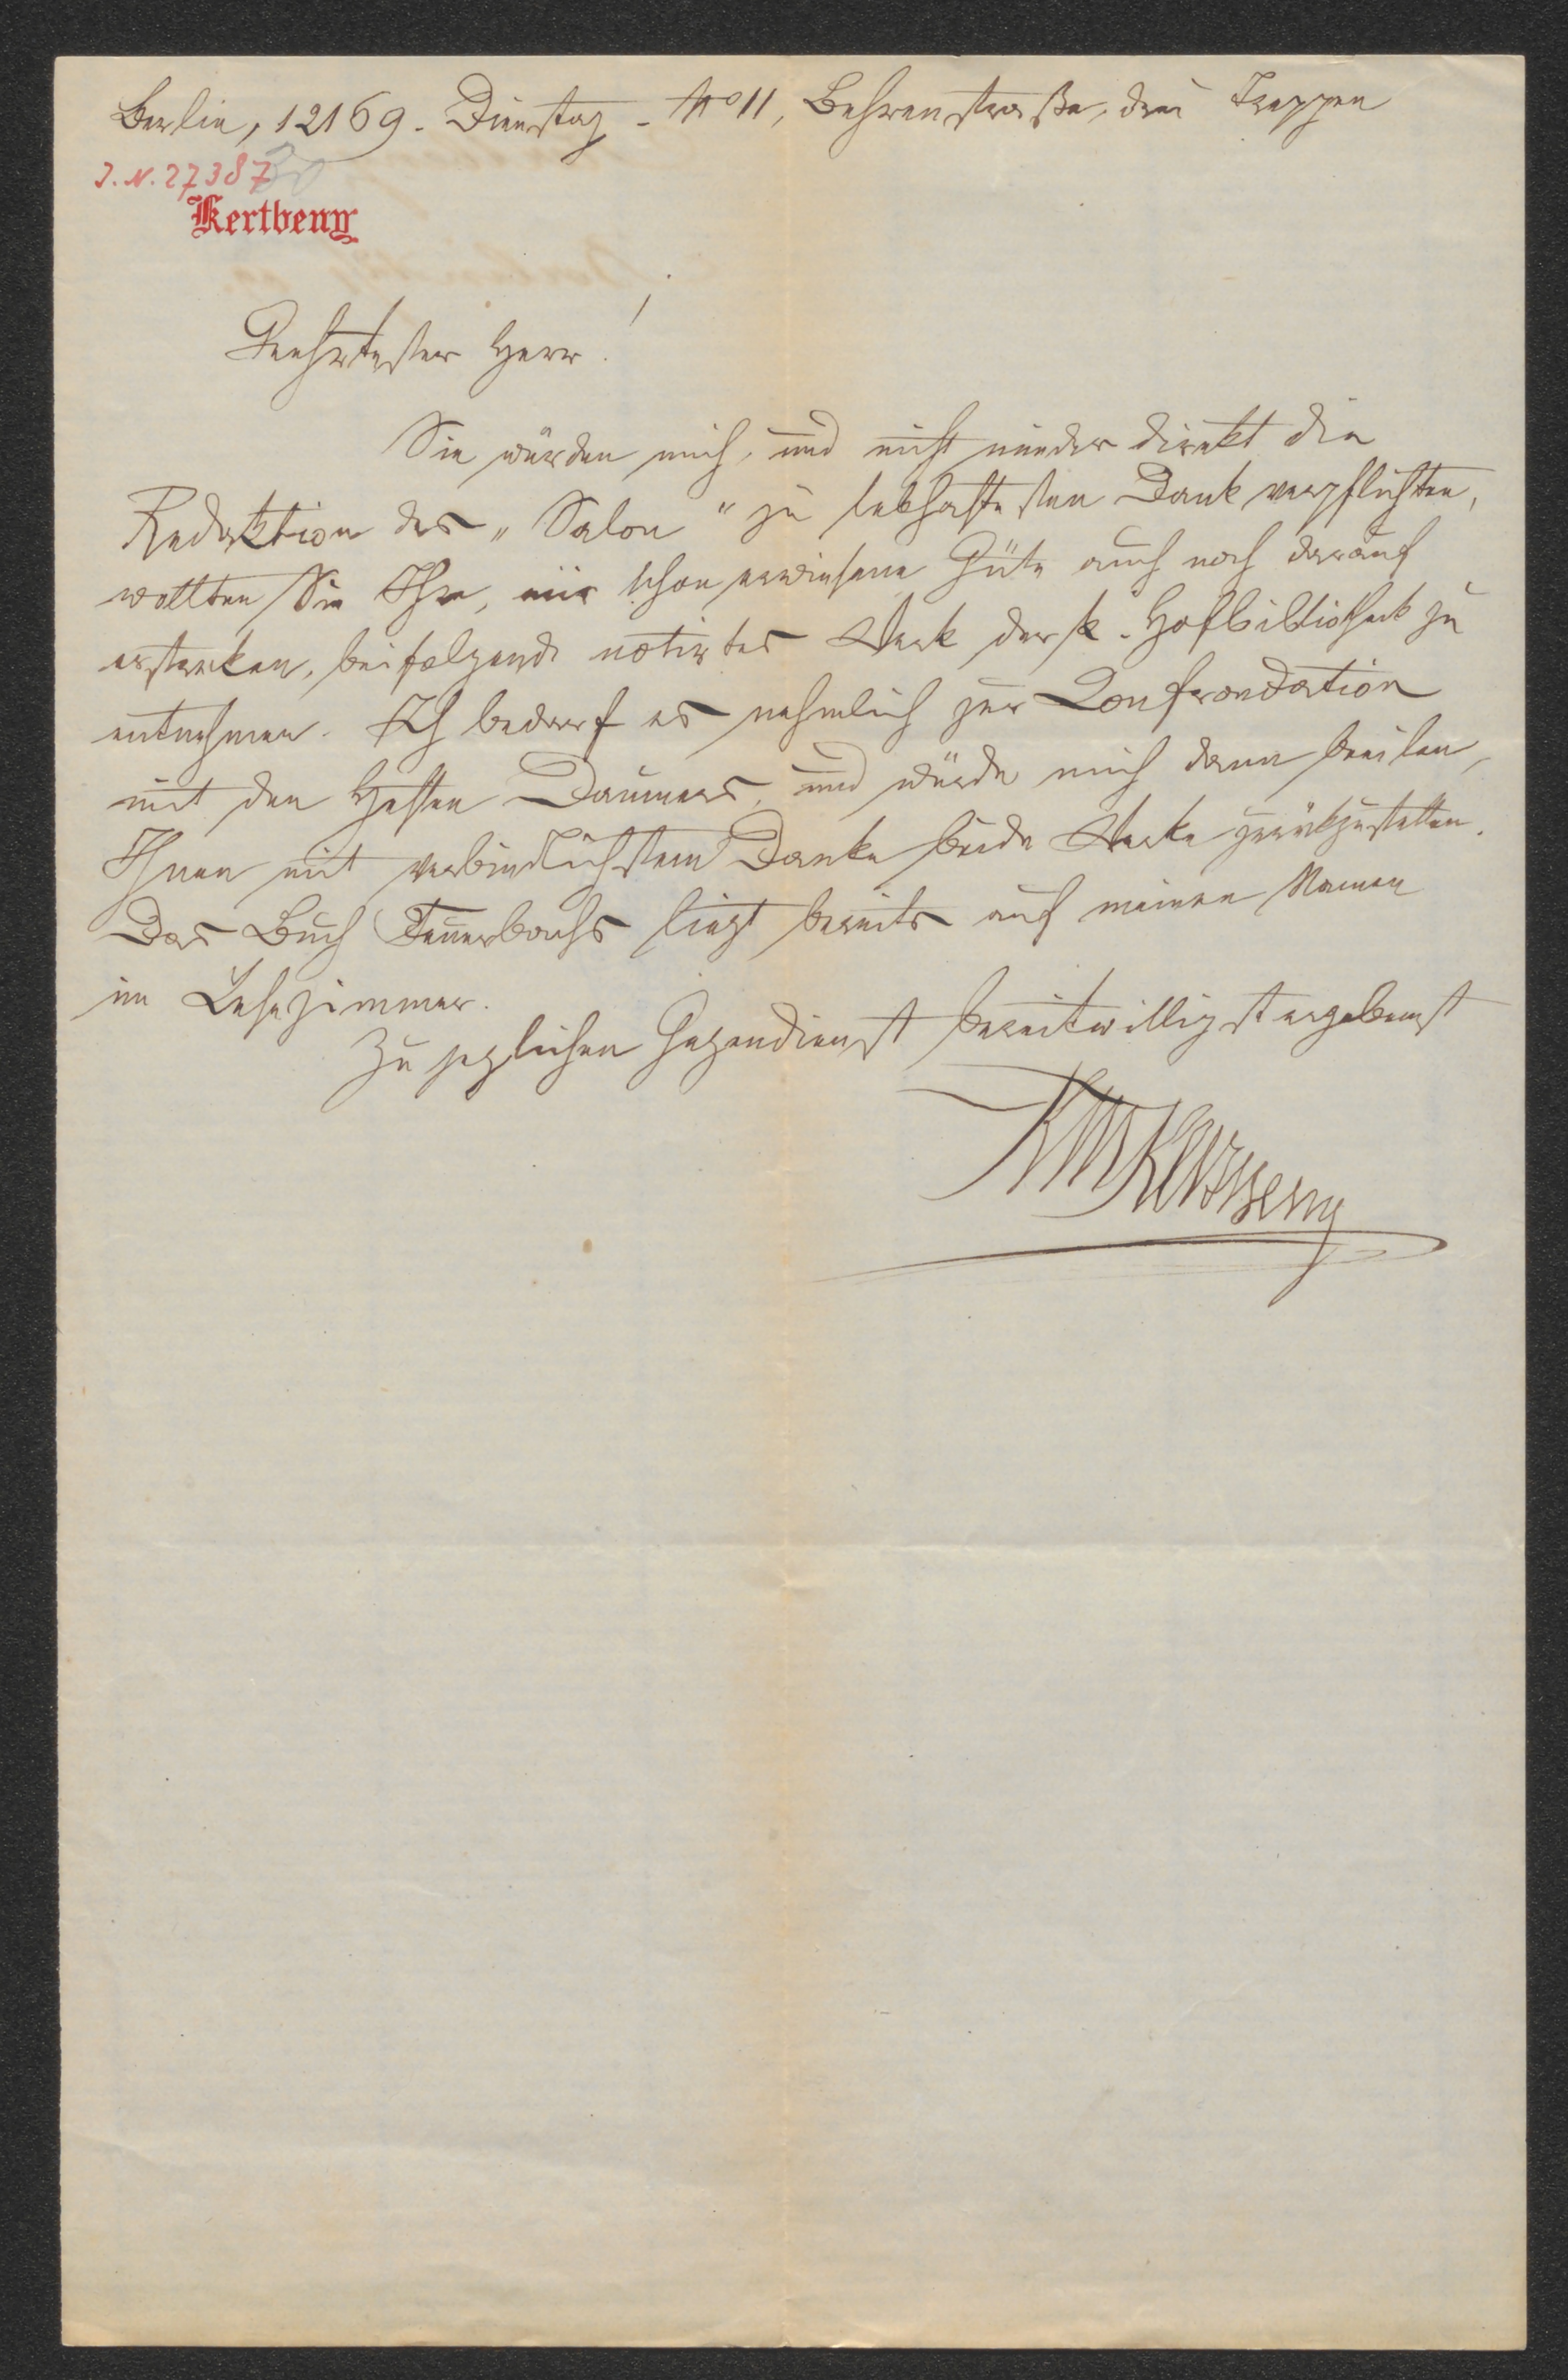 Berlin, 12169. Dienstag. No 11, Behrenstraße, drei Treppen
J.N. 27387
Kertbeny
Geehrtester Herr!
Sie würden mich, und nicht minder direkt die
Redaktion des „Salon" zu lebhaftesten Dank verpflichten,
wollten Sie Ihre, mir schon erwiesene Güte auch noch darauf
erstrecken, beifolgends notirtes Werk der k. Hofbibliothek zu
entnehmen. Ich bedarf es nehmlich zur Confrondation
mit den Heften Daumers, und würde mich dann beeilen,
Ihnen mit verbindlichstem Danke beide Werke zurükzustellen.
Das Buch Feuerbachs liegt bereits auf meinen Namen
im Lesezimmer.
Zu jeglichen Gegendienst bereitwilligst ergebenst
KMKertbeny